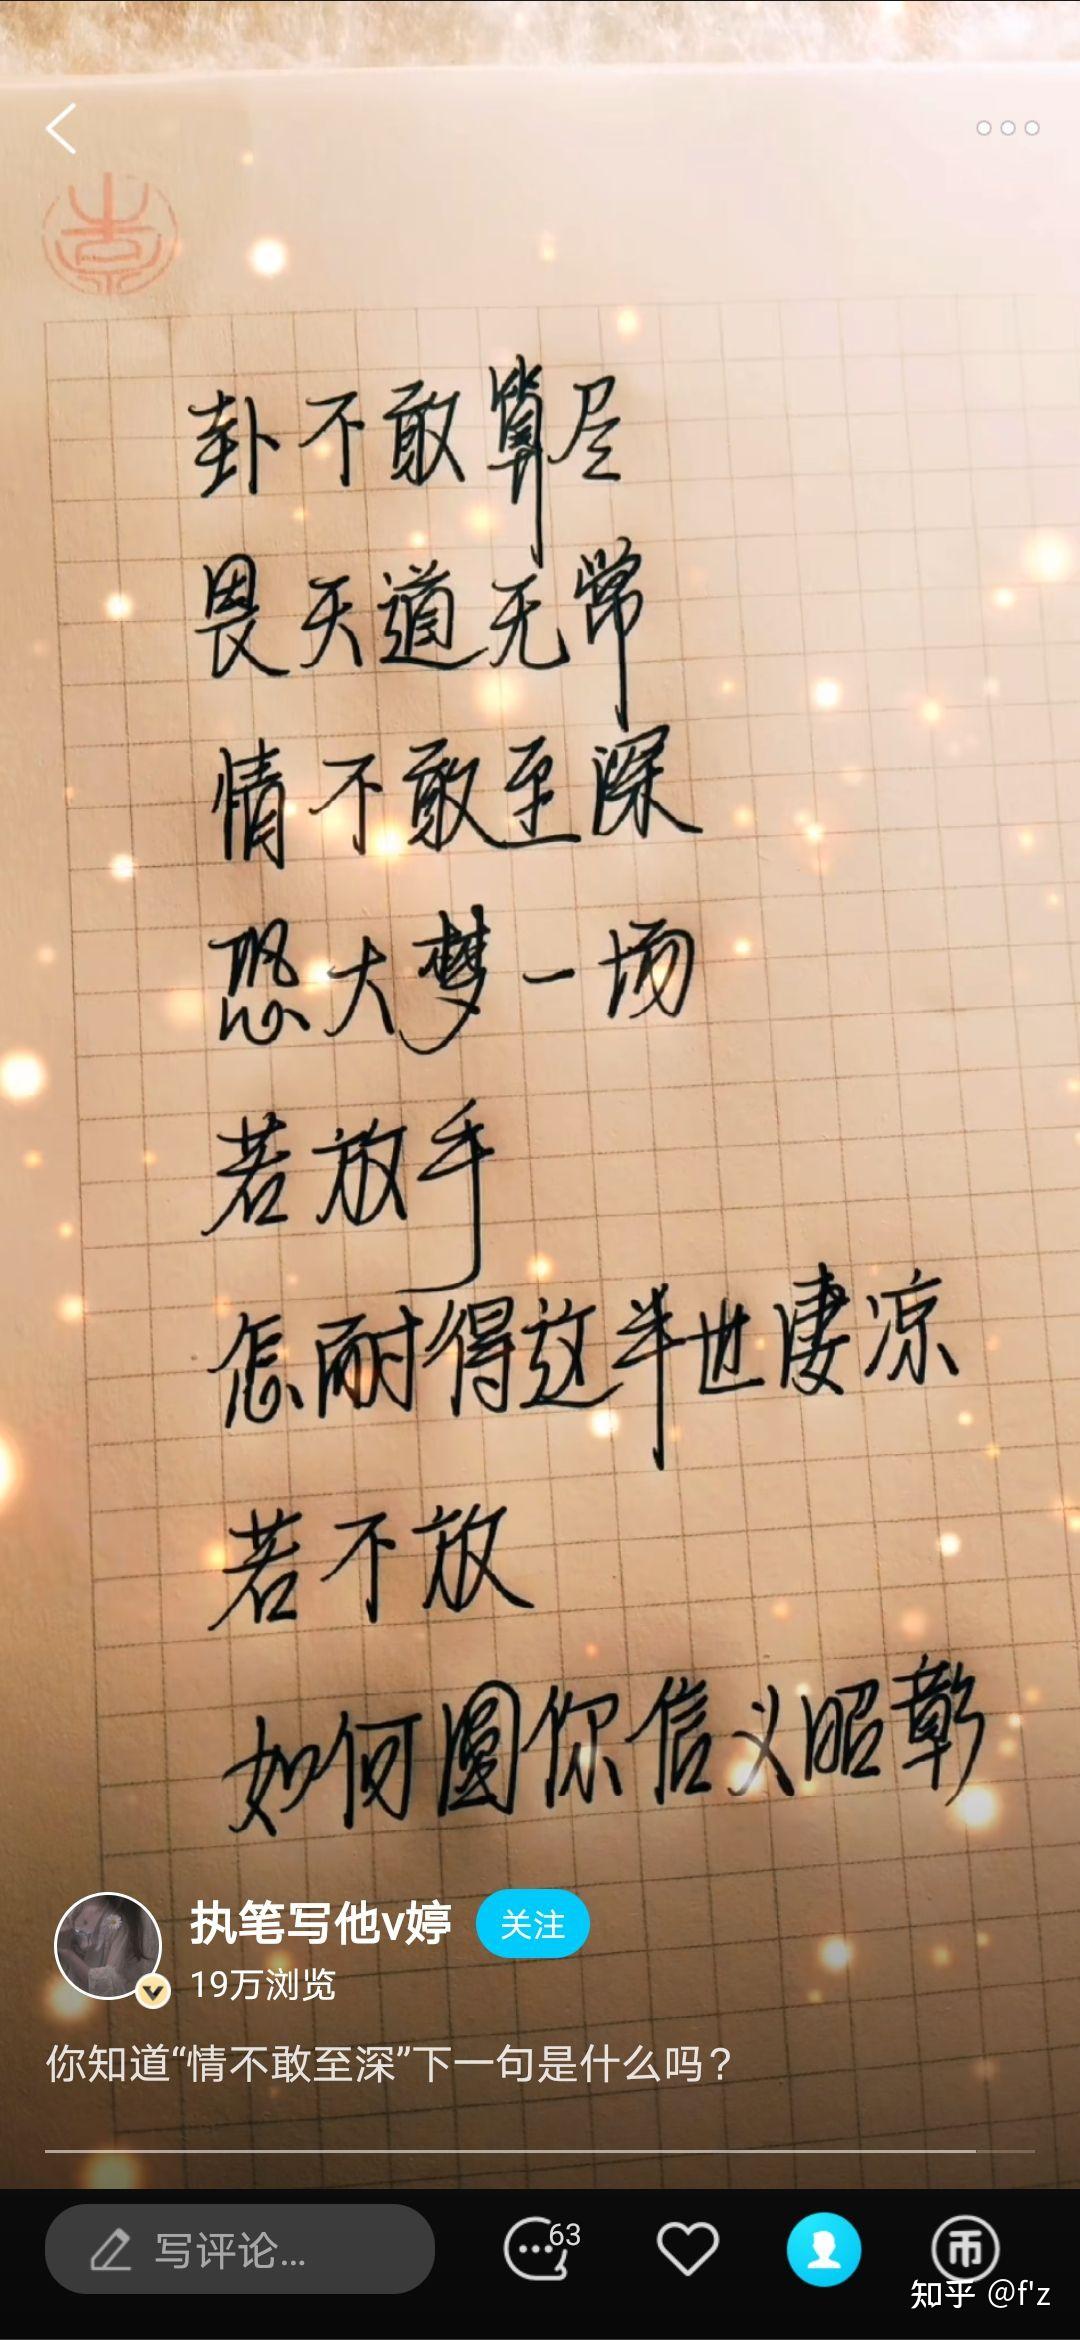 卦不敢算尽
畏天道无常
情不敢至深
恐大梦一场
若放手
怎耐得这半世凄凉
若不放
如何圆你信义昭彰
执笔写他v婷
关注
19万浏览
你知道“情不敢至深”下一句是什么吗？
写评论...
63
币
知乎 @f'z